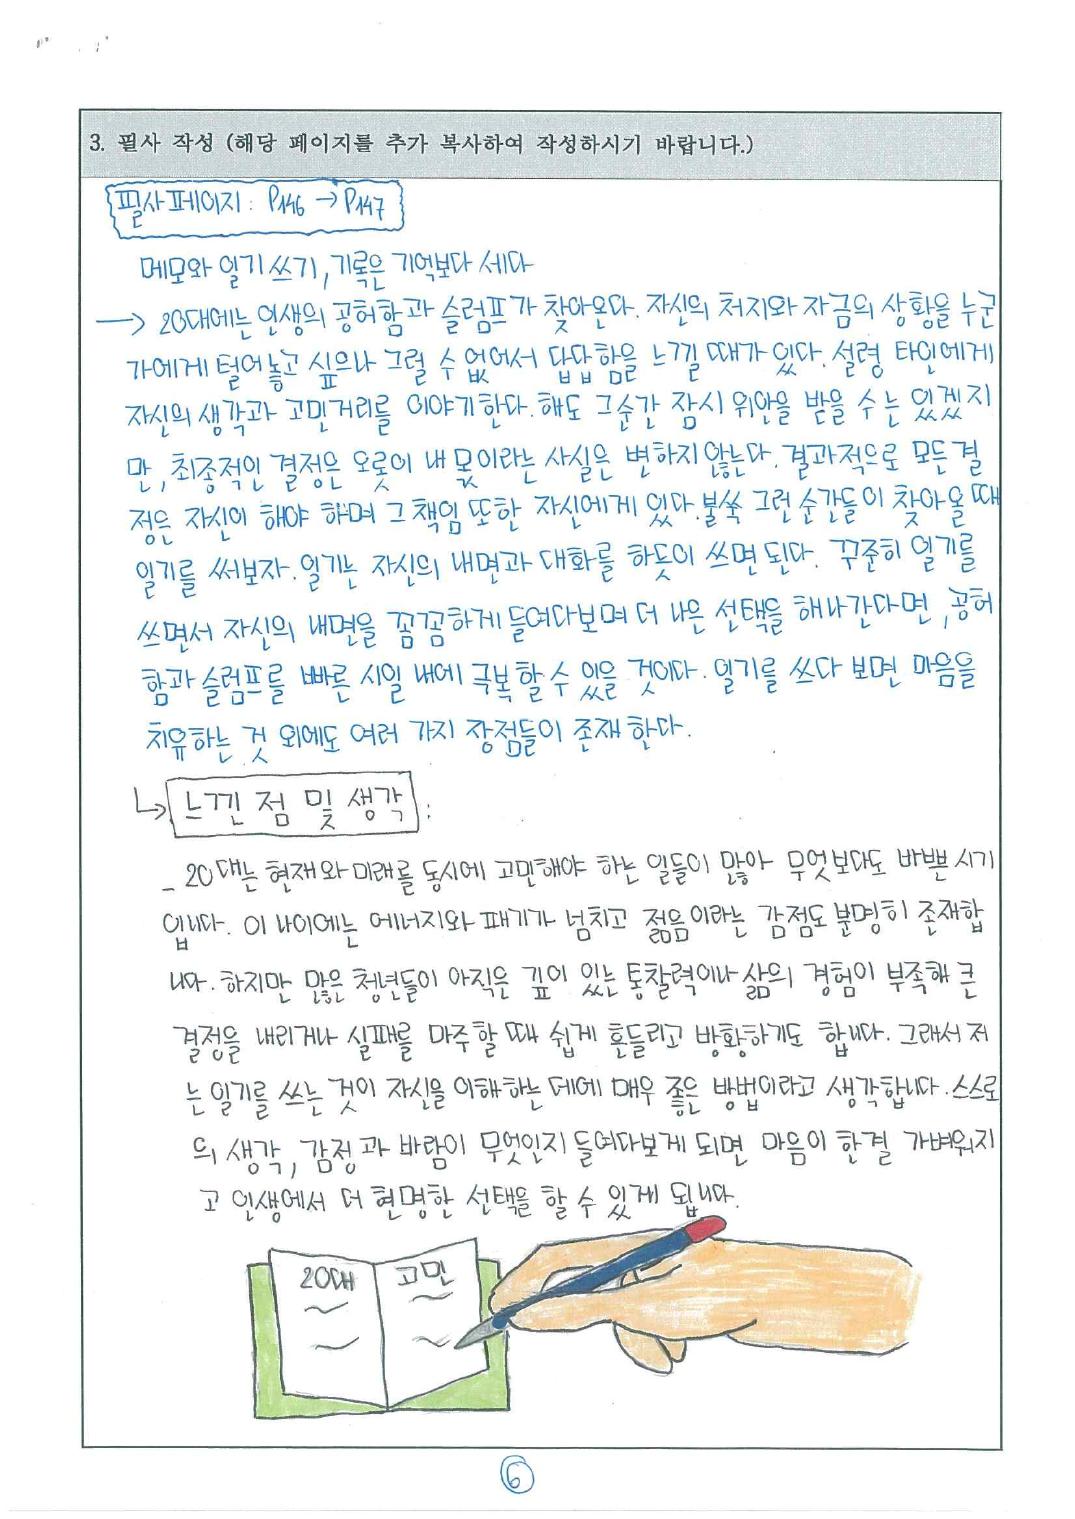 3. 필사 작성 (해당 페이지를 추가 복사하여 작성하시기 바랍니다.)
필사페이지: P146 → P147
메모와 일기 쓰기, 기록은 기억보다 세다
→ 20대에는 인생의 공허함과 슬럼프가 찾아온다. 자신의 처지와 자금의 상황을 누군
가에게 털어놓고 싶으나 그럴 수 없어서 답답함을 느낄 때가 있다. 설령 타인에게
자신의 생각과 고민거리를 이야기한다. 해도 그순간 잠시 위안을 받을 수는 있겠지
만, 최종적인 결정은 오롯이 내 몫이라는 사실은 변하지 않는다. 결과적으로 모든 결
정은 자신이 해야 하며 그 책임 또한 자신에게 있다. 불쑥 그런 순간들이 찾아올 때
일기를 써보자. 일기는 자신의 내면과 대화를 하듯이 쓰면 된다. 꾸준히 일기를
쓰면서 자신의 내면을 꼼꼼하게 들여다보며 더 나은 선택을 해나간다면, 공허
함과 슬럼프를 빠른 시일 내에 극복할 수 있을 것이다. 일기를 쓰다 보면 마음을
치유하는 것 외에도 여러 가지 장점들이 존재한다.
↳ 느낀 점 및 생각 :
_ 20대는 현재와 미래를 동시에 고민해야 하는 일들이 많아 무엇보다도 바쁜 시기
입니다. 이 나이에는 에너지와 패기가 넘치고 젊음이라는 감점도 분명히 존재합
니다. 하지만 많은 청년들이 아직은 깊이 있는 통찰력이나 삶의 경험이 부족해 큰
결정을 내리거나 실패를 마주할 때 쉽게 흔들리고 방황하기도 합니다. 그래서 저
는 일기를 쓰는 것이 자신을 이해하는 데에 매우 좋은 방법이라고 생각합니다. 스스로
의 생각, 감정과 바람이 무엇인지 들여다보게 되면 마음이 한결 가벼워지
고 인생에서 더 현명한 선택을 할 수 있게 됩니다.
20대 고민
6